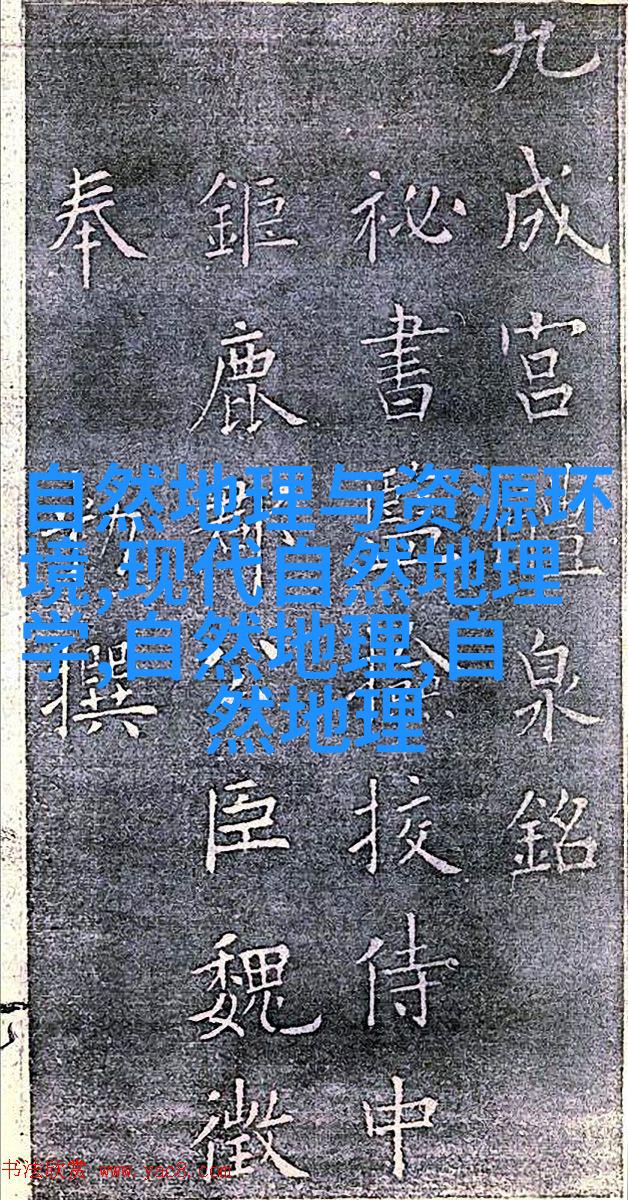 九成宮泉銘
祕書挍侍中
鉅鹿臣魏徵
奉撰
自然地理与资源环
境,现代自然地理
学,自然地理,自
然地理
书法欣赏 www.yac8.com